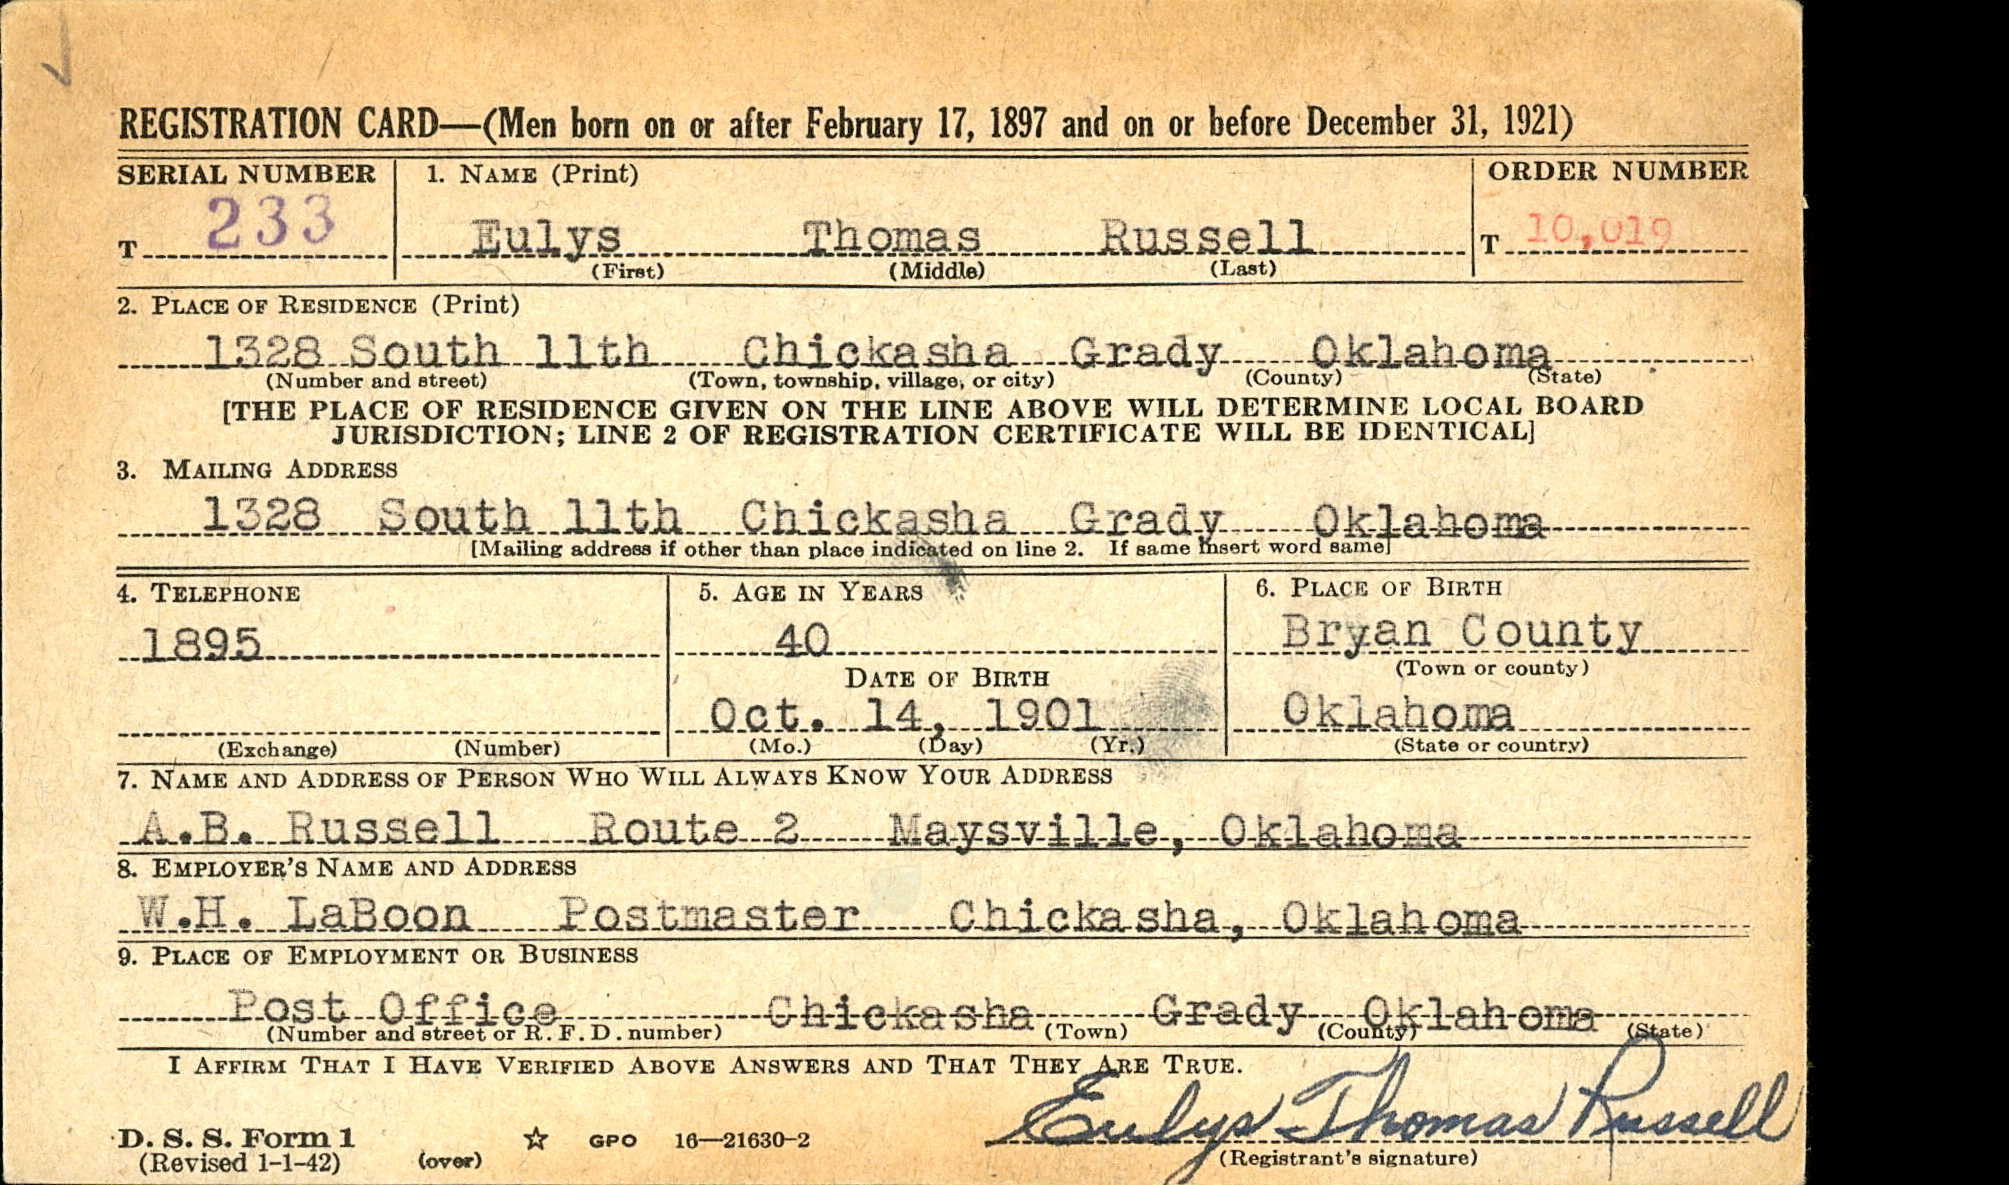 REGISTRATION CARD—(Men born on or after February 17, 1897 and on or before December 31, 1921)
SERIAL NUMBER 1. NAME (Print) ORDER NUMBER
T 233 Eulys Thomas Russell T 10,019
(First) (Middle) (Last)
2. PLACE OF RESIDENCE (Print)
1328 South 11th Chickasha Grady Oklahoma
(Number and street) (Town, township, village, or city) (County) (State)
[THE PLACE OF RESIDENCE GIVEN ON THE LINE ABOVE WILL DETERMINE LOCAL BOARD
JURISDICTION; LINE 2 OF REGISTRATION CERTIFICATE WILL BE IDENTICAL]
3. MAILING ADDRESS
1328 South 11th Chickasha Grady Oklahoma
[Mailing address if other than place indicated on line 2. If same insert word same]
4. TELEPHONE 5. AGE IN YEARS 6. PLACE OF BIRTH
1895 40 Bryan County
DATE OF BIRTH (Town or county)
Oct. 14, 1901 Oklahoma
(Exchange) (Number) (Mo.) (Day) (Yr.) (State or country)
7. NAME AND ADDRESS OF PERSON WHO WILL ALWAYS KNOW YOUR ADDRESS
A.B. Russell Route 2 Maysville, Oklahoma
8. EMPLOYER'S NAME AND ADDRESS
W.H. LaBoon Postmaster Chickasha, Oklahoma
9. PLACE OF EMPLOYMENT OR BUSINESS
Post Office Chickasha Grady Oklahoma
(Number and street or R. F. D. number) (Town) (County) (State)
I AFFIRM THAT I HAVE VERIFIED ABOVE ANSWERS AND THAT THEY ARE TRUE.
Eulys Thomas Russell
D. S. S. Form 1 ☆ GPO 16—21630-2
(Revised 1-1-42) (over) (Registrant's signature)